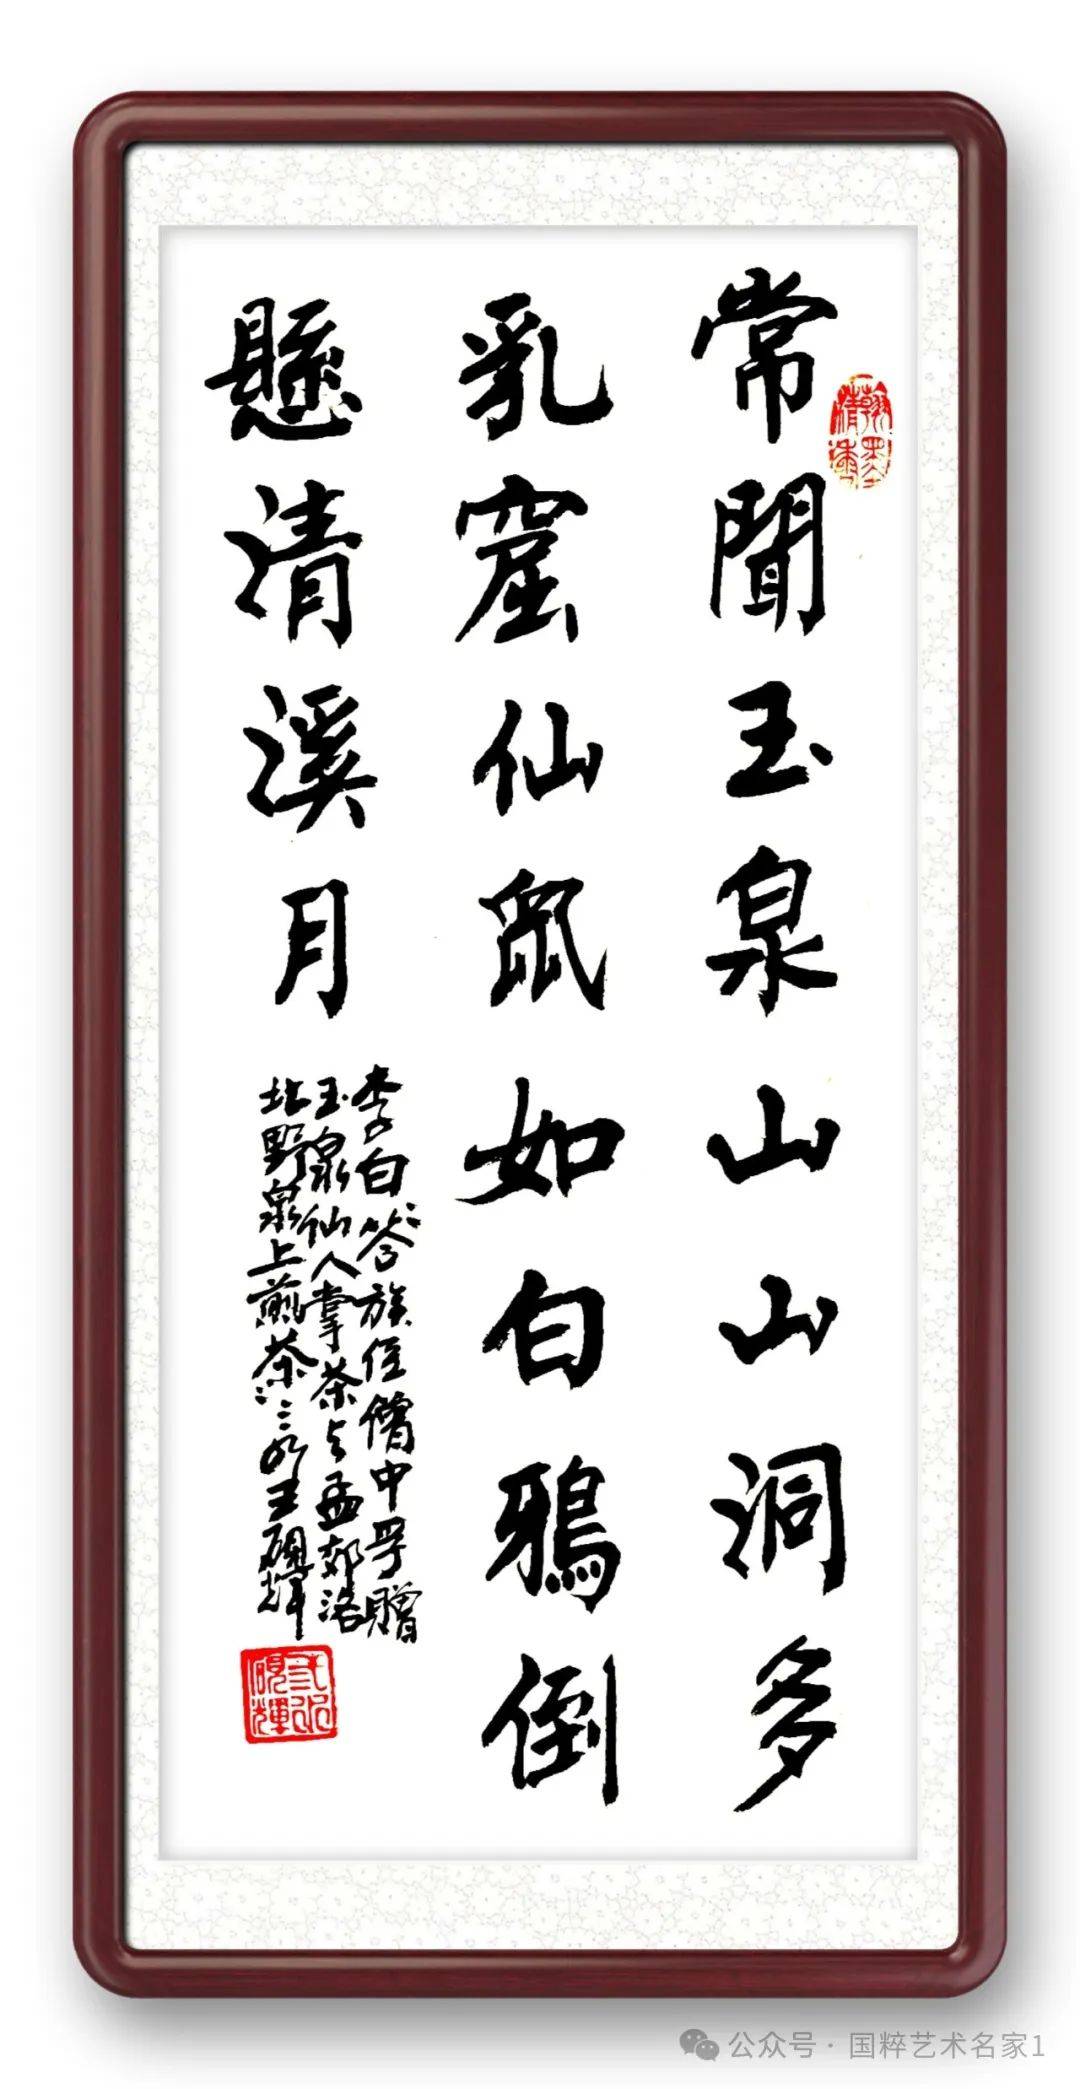 常聞玉泉山山洞多
乳窟仙鼠如白鴉倒
懸清溪月
李白答族侄僧中孚贈
玉泉仙人掌茶与孟郊洛
北野泉上煎茶 王硯輝
硯輝
公众号 · 国粹艺术名家1